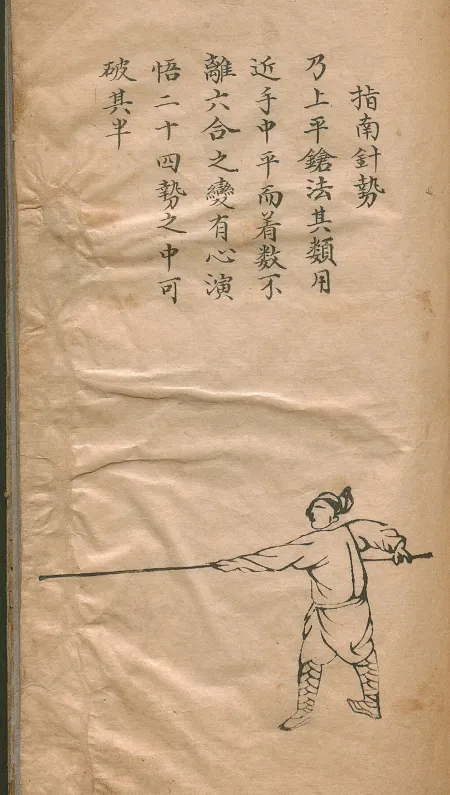 指南針勢
乃上平鎗法其類用
近手中平而着数不
離六合之變有心演
悟二十四勢之中可
破其半